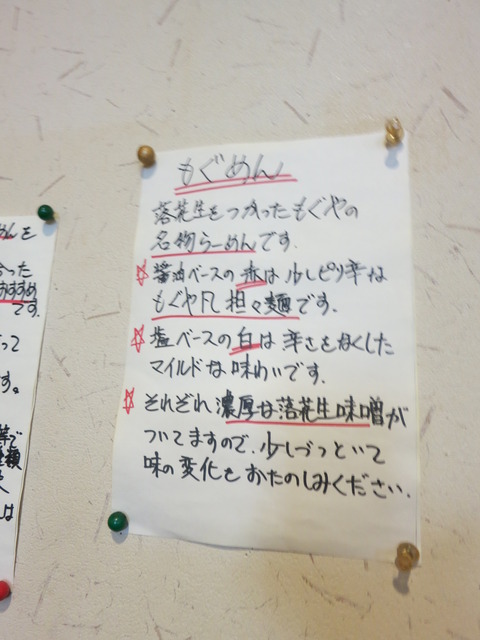 もぐめん
落花生をつかったもぐやの
名物らーめんです.
☆醤油ベースの赤は少しピリ辛な
もぐや風担々麺です.
☆塩ベースの白は辛さをなくした
マイルドな味わいです.
☆それぞれ濃厚な落花生味噌が
ついてますので、少しづつといて
味の変化をおたのしみください.
めんを
った
おすすめ
です.
って
す。
で
は